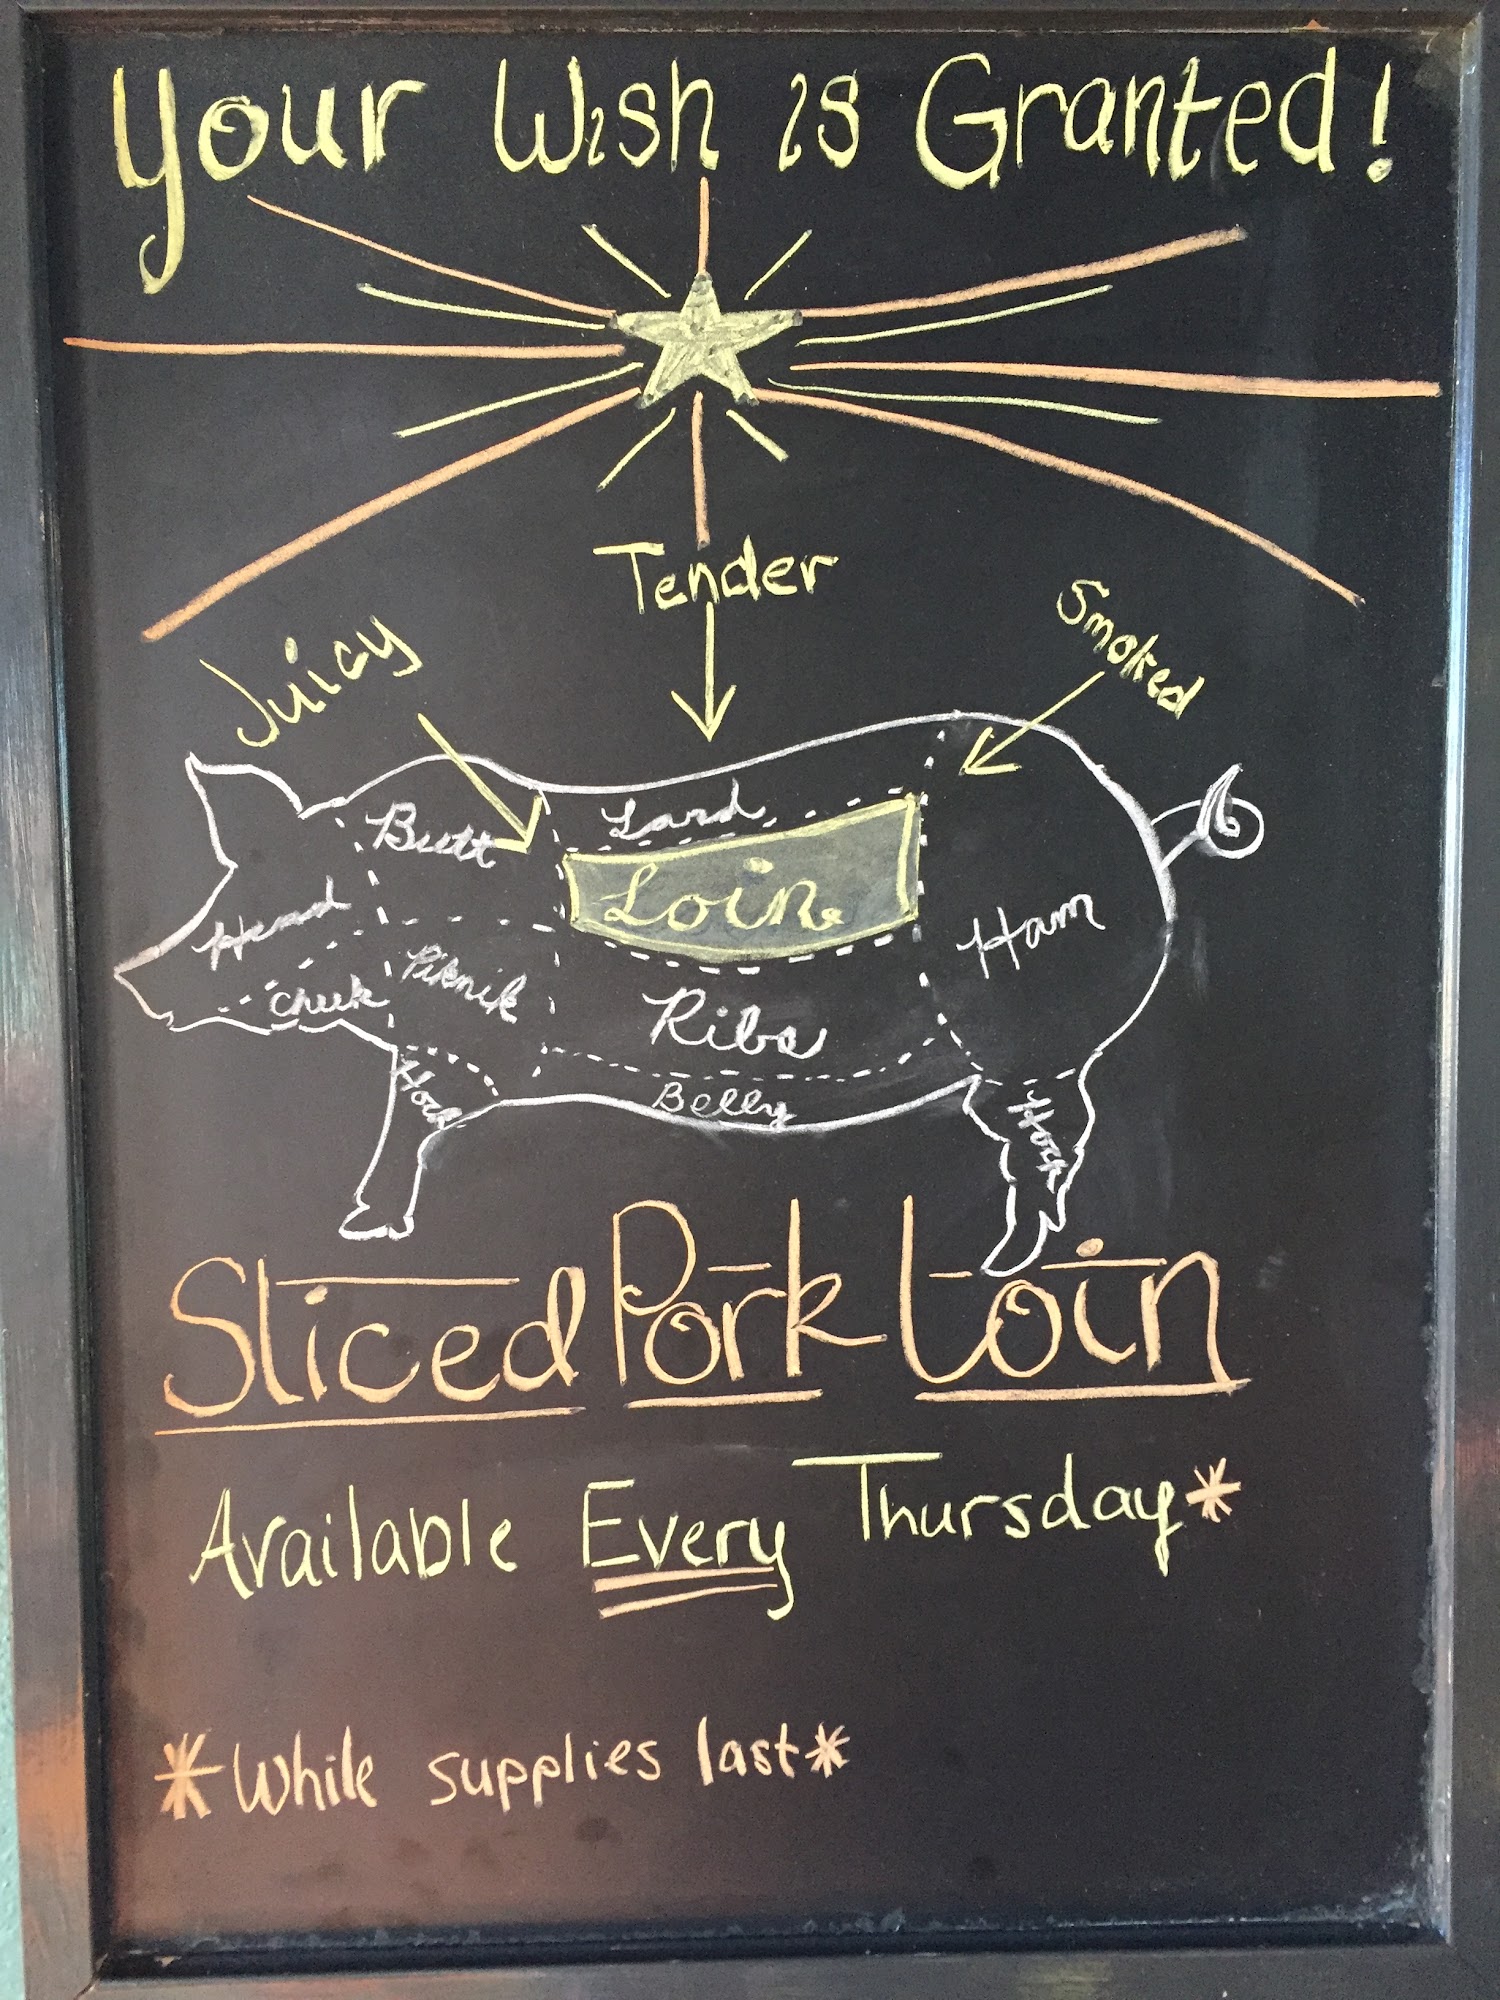 Your Wish is Granted!
Tender
Juicy
Smoked
Lard
Butt
Loin
Head
Ham
Piknik
Cheek
Ribs
Hock
Belly
Hock
Sliced Pork Loin
Available Every Thursday*
*While supplies last*